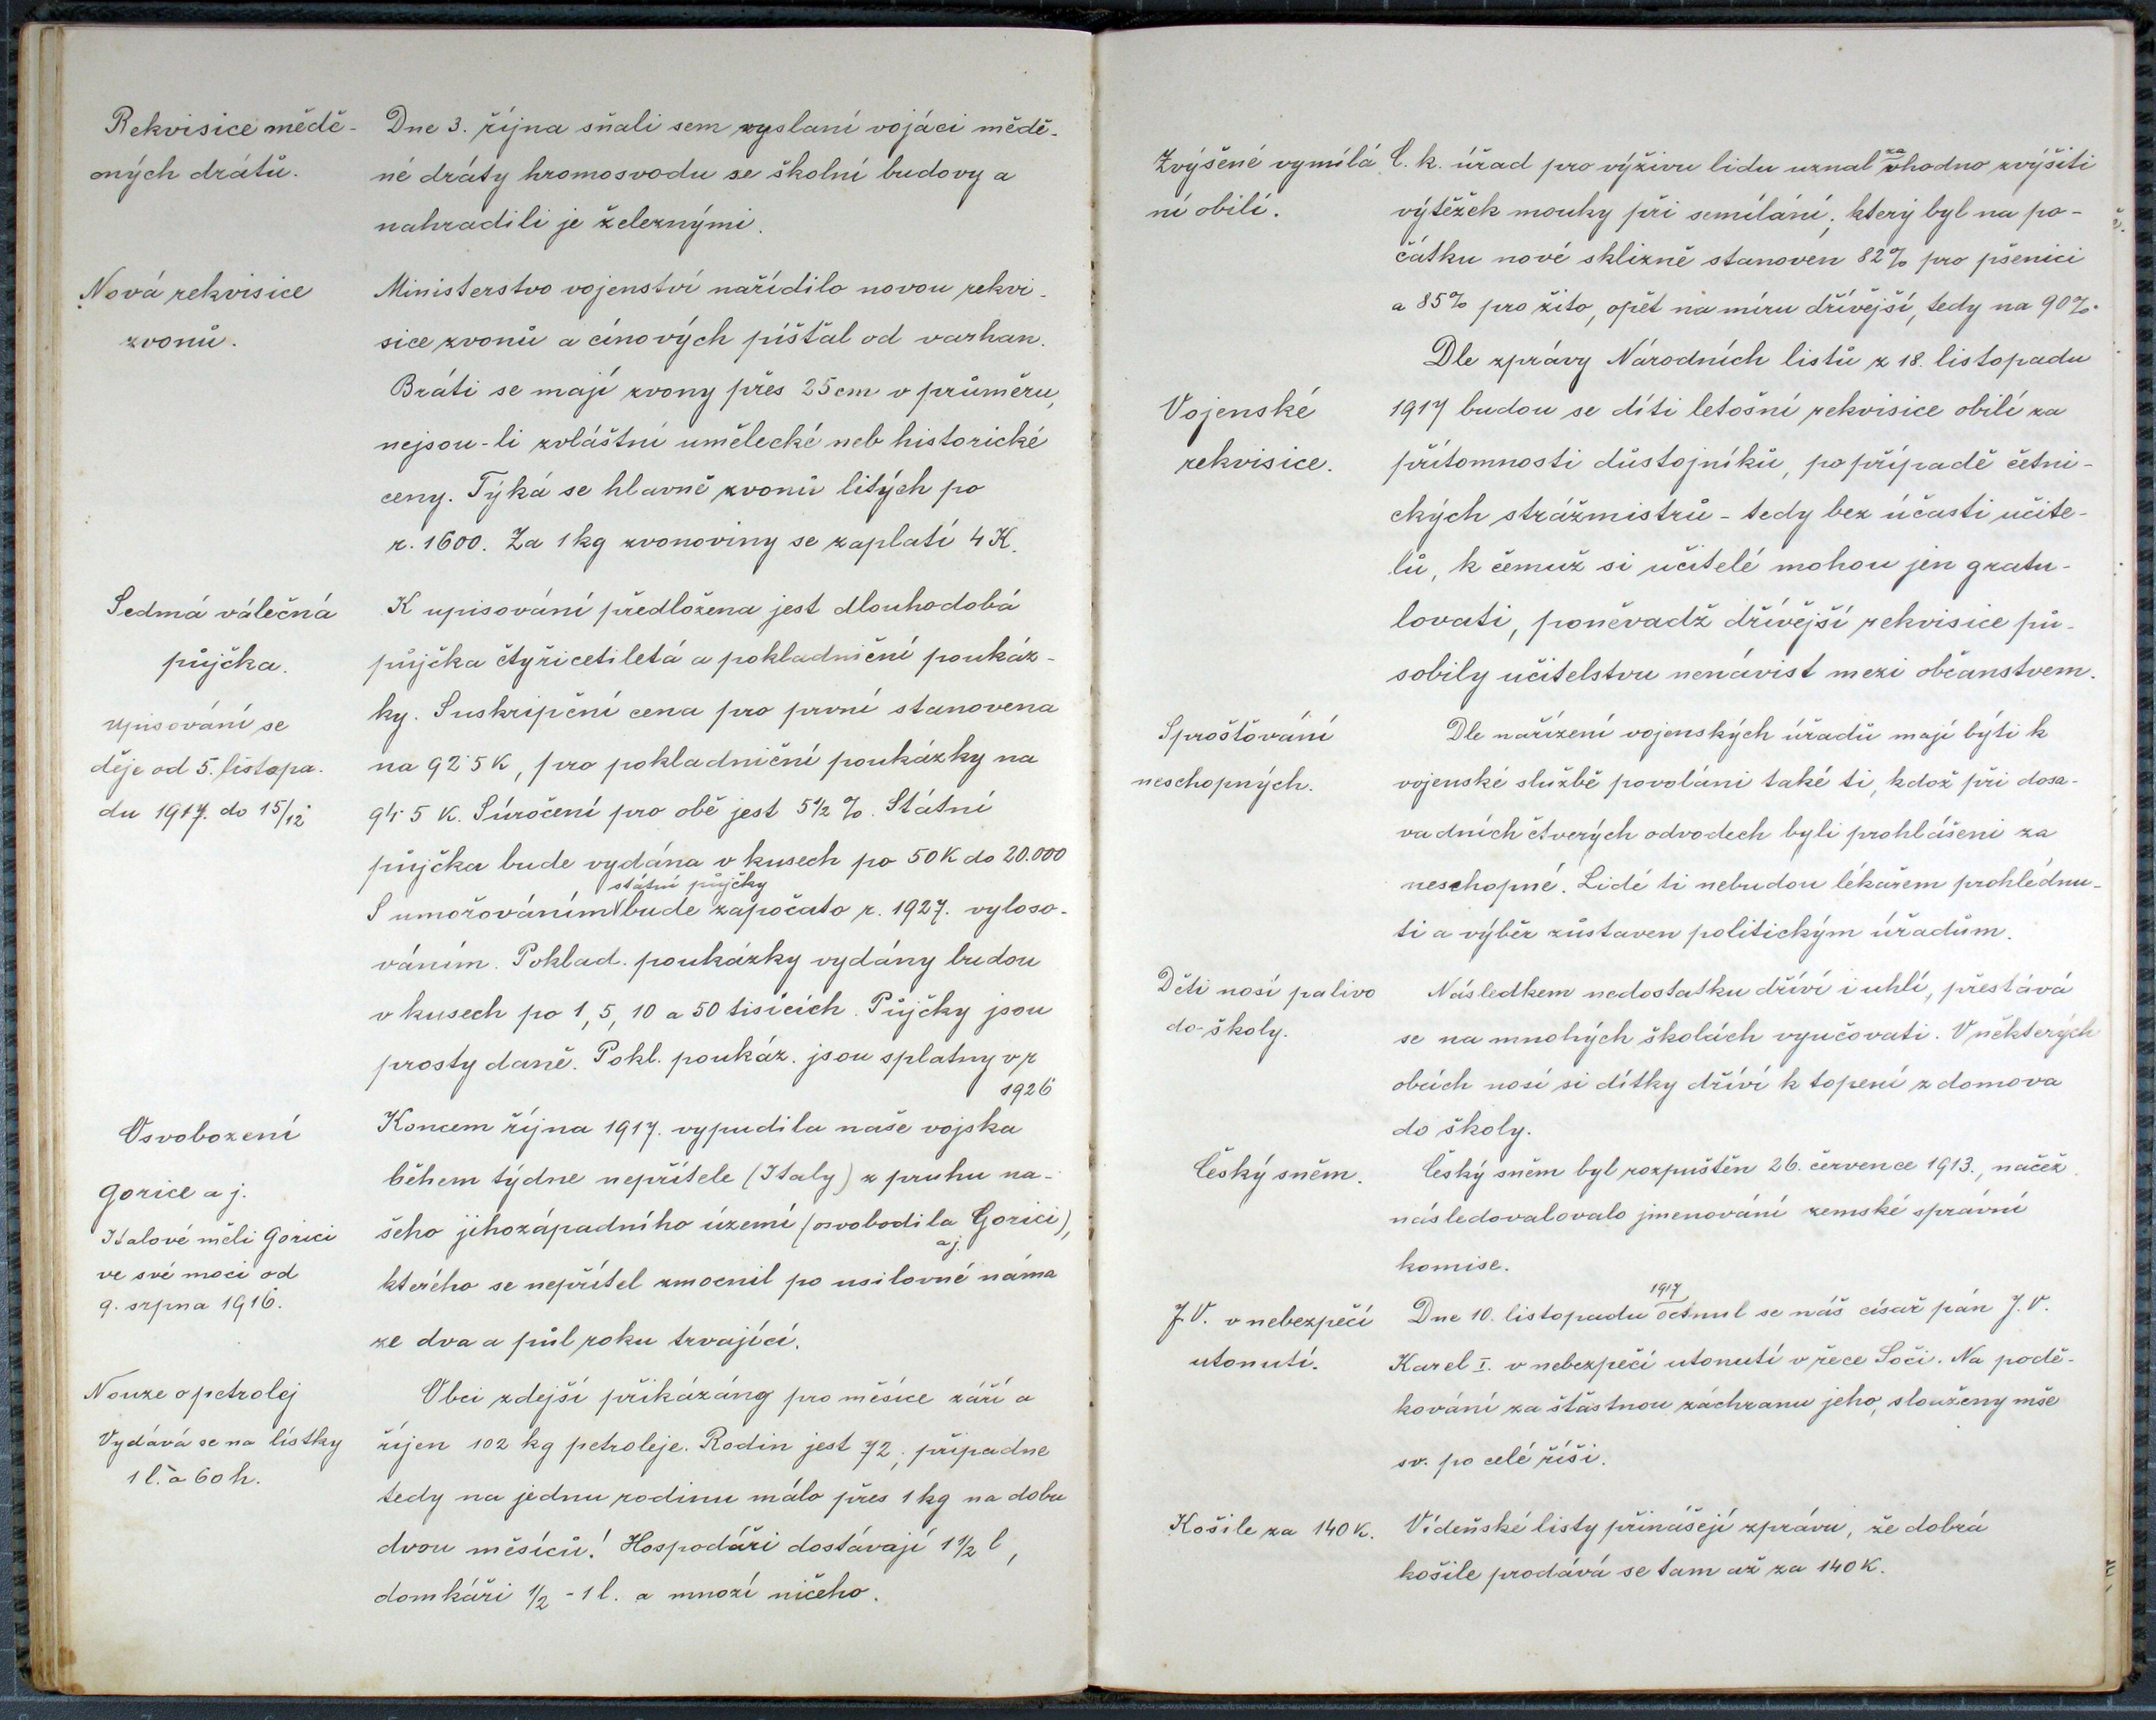 Rekvisice mědě-
ných drátů.
Dne 3. října sňali sem vyslaní vojáci mědě-
né dráty hromosvodu se školní budovy a
nahradili je železnými.
Nová rekvisice
zvonů.
Ministerstvo vojenství nařídilo novou rekvi-
sice zvonů a cínových píšťal od varhan.
Bráti se mají zvony přes 25 cm v průměru,
nejsou-li zvláštní umělecké neb historické
ceny. Týká se hlavně zvonů litých po
r. 1600. Za 1 kg zvonoviny se zaplatí 4 K.
Sedmá válečná
půjčka.
upisování se
děje od 5. listopa-
du 1917. do 15/12
K upisování předložena jest dlouhodobá
půjčka čtyřicetiletá a pokladniční poukáz-
ky. Suskripční cena pro první stanovena
na 92·5 K, pro pokladniční poukázky na
94·5 K. Súročení pro obě jest 5 1/2 %. Státní
půjčka bude vydána v kusech po 50 K do 20.000
státní půjčky
S umořováním bude započato r. 1927. vyloso-
váním. Poklad. poukázky vydány budou
v kusech po 1, 5, 10 a 50 tisících. Půjčky jsou
prosty daně. Pokl. poukáz. jsou splatny v r
1926
Osvobození
Gorice a j.
Italové měli Gorici
ve své moci od
9. srpna 1916.
Koncem října 1917. vypudila naše vojska
během týdne nepřítele (Italy) z pruhu na-
šeho jihozápadního území (osvobodila Gorici),
a j.
kterého se nepřítel zmocnil po usilovné náma
ze dva a půl roku trvající.
Nouze o petrolej
Vydává se na lístky
1 l. à 60 h.
Obci zdejší přikázáno pro měsíce září a
říjen 102 kg petroleje. Rodin jest 72, připadne
tedy na jednu rodinu málo přes 1 kg na dobu
dvou měsíců! Hospodáři dostávají 1 1/2 l,
domkáři 1/2 - 1 l. a mnozí ničeho.
Zvýšené vymílá
ní obilí.
za
C. k. úřad pro výživu lidu uznal vhodno zvýšiti
výtěžek mouky při semílání, který byl na po-
čátku nové sklizně stanoven 82% pro pšenici
a 85% pro žito, opět na míru dřívější, tedy na 90%.
Dle zprávy Národních listů z 18. listopadu
Vojenské
rekvisice.
1917 budou se díti letošní rekvisice obilí za
přítomnosti důstojníků, po případě četni-
ckých strážmistrů - tedy bez účasti učite-
lů, k čemuž si učitelé mohou jen gratu-
lovati, poněvadž dřívější rekvisice pů-
sobily učitelstvu nenávist mezi občanstvem.
Sprošťování
neschopných.
Dle nařízení vojenských úřadů mají býti k
vojenské službě povoláni také ti, kdož při dosa-
vadních čtverých odvodech byli prohlášeni za
neschopné. Lidé ti nebudou lékařem prohlédnu-
ti a výběr zůstaven politickým úřadům.
Děti nosí palivo
do školy.
Následkem nedostatku dříví i uhlí, přestává
se na mnohých školách vyučovati. V některých
obcích nosí si dítky dříví k topení z domova
do školy.
Český sněm.
Český sněm byl rozpuštěn 26. července 1913., načež
následovalovalo jmenování zemské správní
komise.
J. V. v nebezpečí
utonutí.
1917
Dne 10. listopadu octnul se náš císař pán J. V.
Karel I. v nebezpečí utonutí v řece Soči. Na podě-
kování za šťastnou záchranu jeho, slouženy mše
sv. po celé říši.
Košile za 140 K.
Vídeňské listy přinášejí zprávu, že dobrá
košile prodává se tam až za 140 K.